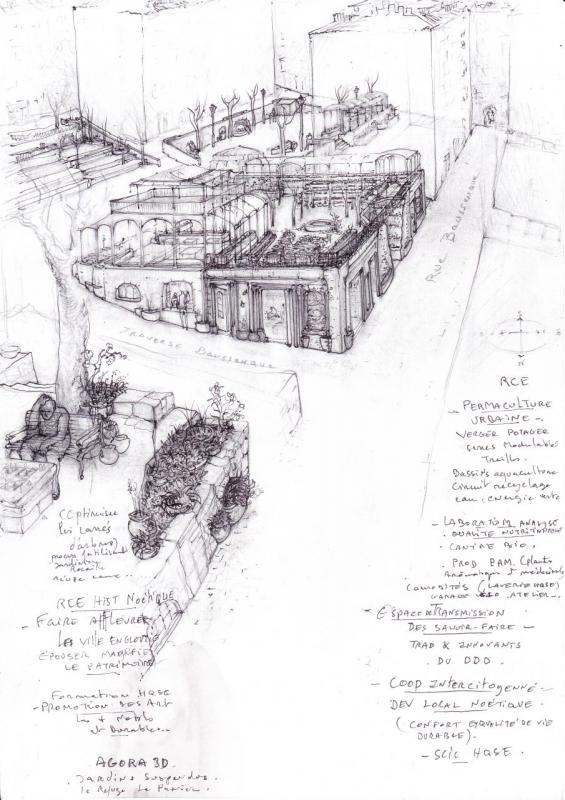 Rue Baussenque
Traverse Baussenque
N
RCE
- PERMACULTURE
URBAINE -
VERGER POTAGER
Serres Modulables
Treilles.
Bassins aquaculture
Circuit recyclage
eau, énergie verte
- LABORATOIRE ANALYSE
QUALITÉ NUTRITIONNELLE
- CANTINE BIO.
- PROD PAM (plantes
Aromatiques et médicinales
COMOSITÉS (LAVERIE HQSE)
GARAGE VÉLO ATELIER...
- ESPACE DE TRANSMISSION
DES SAVOIR-FAIRE -
TRAD & INNOVANTS
DU DDD.
- COOP INTERCITOYENNE -
DEV LOCAL NOÉTIQUE.
(CONFORT & QUALITÉ DE VIE
DURABLE).
- SCIC HQSE.
(Optimiser
les carrés
d'arbres)
RCE HIST NOÉTIQUE
- FAIRE AFFLEURER
LES VILLE ENGLOUTIE
ÉPOUSER MAGNIFIER
LE PATRIMOINE
Formation HQSE
- PROMOTION DES ART
Les + Nobles
et Durables...
AGORA 3D.
Jardins Suspendus.
le Refuge Le Panier.